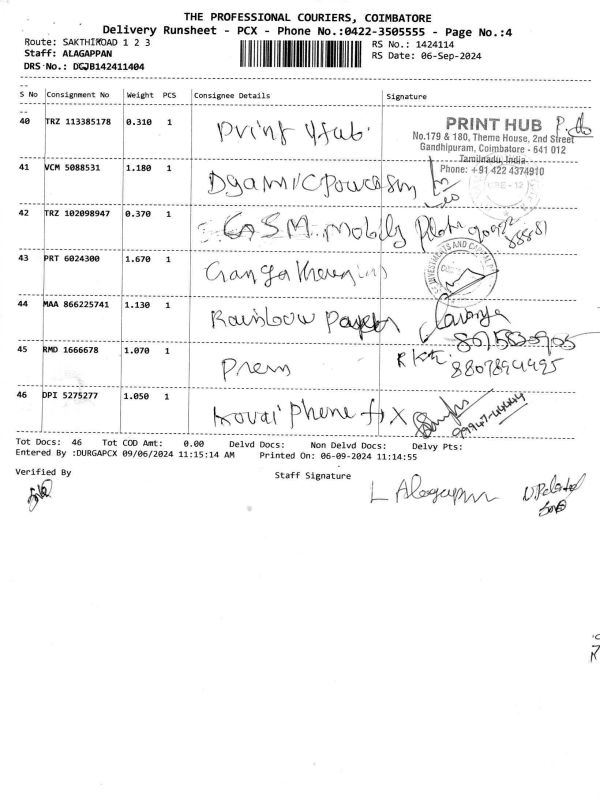 THE PROFESSIONAL COURIERS, COIMBATORE
Delivery Runsheet - PCX - Phone No.:0422-3505555 - Page No.:4
Route: SAKTHIROAD 1 2 3
RS No.: 1424114
Staff: ALAGAPPAN
RS Date: 06-Sep-2024
DRS No.: DGJB142411404
S No Consignment No Weight PCS Consignee Details Signature
40 TRZ 113385178 0.310 1 Print Hub
PRINT HUB
No.179 & 180, Theme House, 2nd Street
Gandhipuram, Coimbatore - 641 012
Tamilnadu, India
Phone: +91 422 4374910
41 VCM 5088531 1.180 1
42 TRZ 102098947 0.370 1 GSM Mobily
43 PRT 6024300 1.670 1 Ganga
INVESTMENTS AND
44 MAA 866225741 1.130 1 Rainbow Paper
45 RMD 1666678 1.070 1 Prem
8807894495
46 DPI 5275277 1.050 1 Kovai Phene
Tot Docs: 46 Tot COD Amt: 0.00 Delvd Docs: Non Delvd Docs: Delvy Pts:
Entered By :DURGAPCX 09/06/2024 11:15:14 AM Printed On: 06-09-2024 11:14:55
Verified By
Staff Signature
L Alagappan